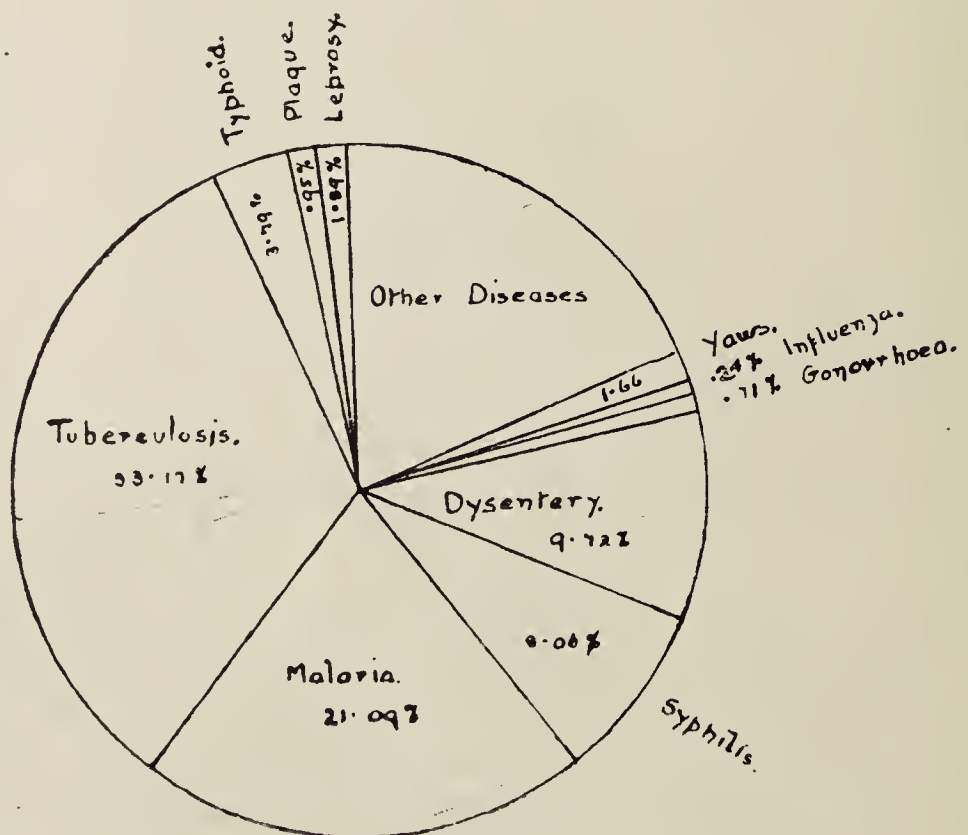 Typhoid.
Plaque.
Leprosy.
3.79%
.95%
1.89%
Other Diseases
Yaws.
.24% Influenza.
.71% Gonorrhoea.
1.66
Tuberculosis.
33.17%
Dysentery.
9.72%
8.06%
Malaria.
21.09%
Syphilis.